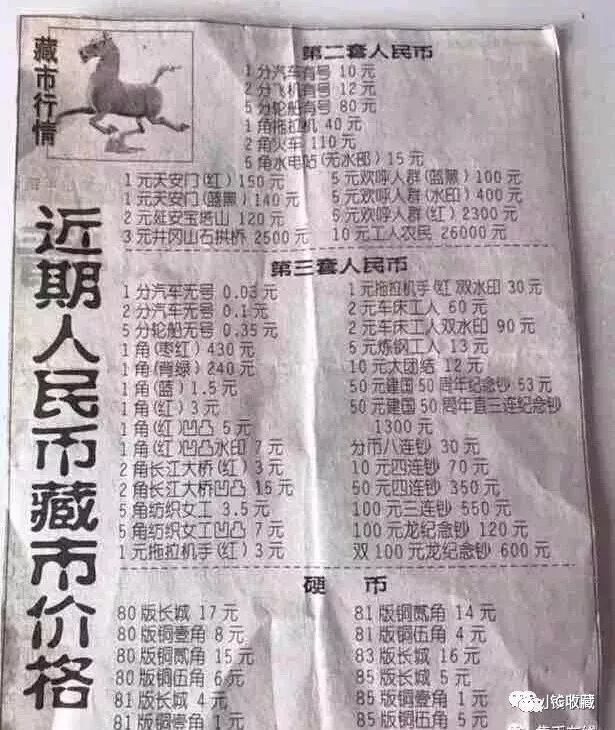 藏市行情
近期人民币藏市价格
第二套人民币
1分汽车有号 10元
2分飞机有号 12元
5分轮船有号 80元
1角拖拉机 40元
2角火车 110元
5角水电站(无水印) 15元
1元天安门(红) 150元
1元天安门(蓝黑) 140元
2元延安宝塔山 120元
3元井冈山石拱桥 2500元
5元欢呼人群(蓝黑) 100元
5元欢呼人群(水印) 400元
5元欢呼人群(红) 2300元
10元工人农民 26000元
第三套人民币
1分汽车无号 0.03元
2分汽车无号 0.1元
5分轮船无号 0.35元
1角(枣红) 430元
1角(背绿) 240元
1角(蓝) 1.5元
1角(红) 3元
1角(红)凹凸 5元
1角(红)凹凸水印 7元
2角长江大桥(红) 3元
2角长江大桥凹凸 15元
5角纺织女工 3.5元
5角纺织女工凹凸 7元
1元拖拉机手(红) 3元
1元拖拉机手(红)双水印 30元
2元车床工人 60元
2元车床工人双水印 90元
5元炼钢工人 13元
10元大团结 12元
50元建国50周年纪念钞 53元
50元建国50周年直三连纪念钞
1300元
分币八连钞 30元
10元四连钞 70元
50元四连钞 350元
100元三连钞 550元
100元龙纪念钞 120元
双100元龙纪念钞 600元
硬币
80版长城 17元
80版铜壹角 8元
80版铜贰角 15元
80版铜伍角 6元
81版长城 4元
81版铜壹角 1元
81版铜贰角 14元
81版铜伍角 4元
83版长城 16元
85版长城 5元
85版铜壹角 1元
85版铜伍角 5元
收藏